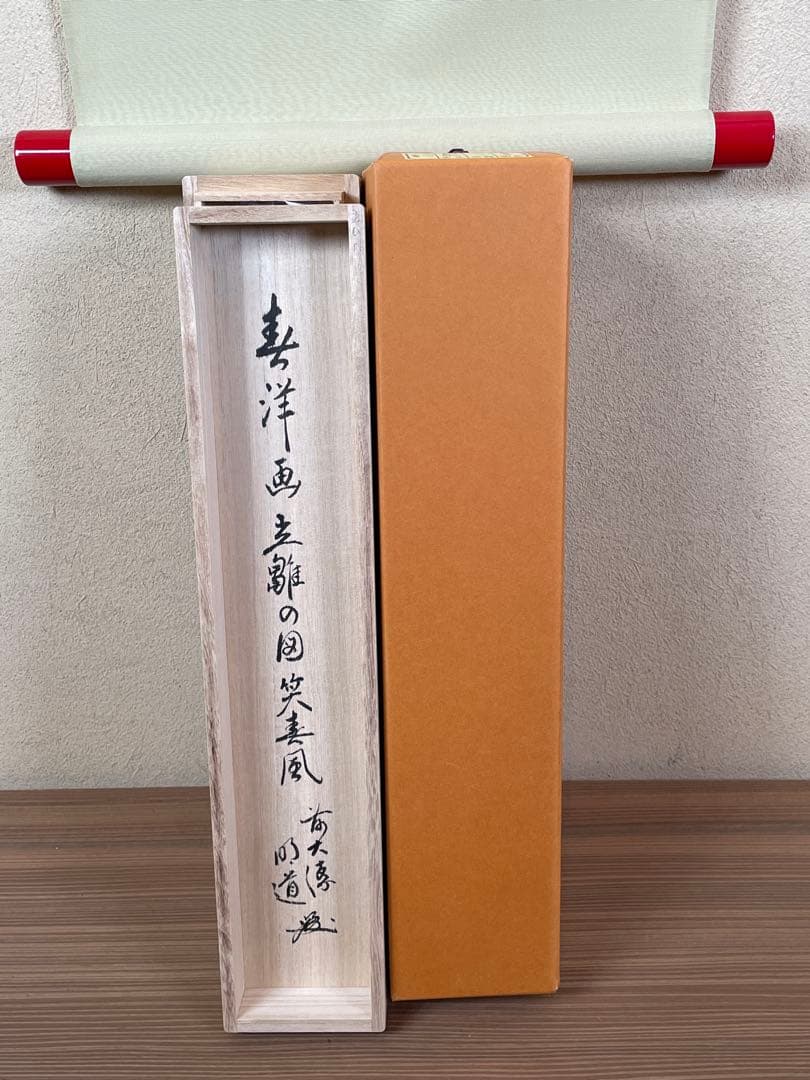 春洋画立雛の図笑春風
前大徳
明道